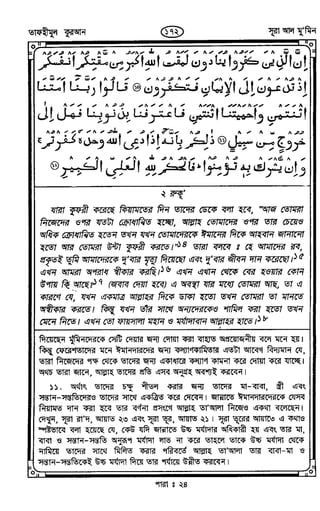 তাফহীমুল কুরআন
১৭২
সূরা আল মু'মিন
إِنَّ الَّذِينَ كَفَرُوا يُنَادَوْنَ لَمَقْتُ اللهِ أَكْبَرُ مِنْ مَقْتِكُمْ أَنْفُسَكُمْ
إِذْ تُدْعَوْنَ إِلَى الْإِيمَانِ فَتَكْفُرُونَ ⑩ قَالُوا رَبَّنَا أَمَتَّنَا
اثْنَتَيْنِ وَأَحْيَيْتَنَا اثْنَتَيْنِ فَاعْتَرَفْنَا بِذُنُوبِنَا فَهَلْ إِلَى
خُرُوجٍ مِنْ سَبِيلٍ ⑪ ذَلِكُمْ بِأَنَّهُ إِذَا دُعِيَ اللهُ وَحْدَهُ كَفَرْتُمْ
وَإِنْ يُشْرَكْ بِهِ تُؤْمِنُوا فَالْحُكْمُ لِلَّهِ الْعَلِيِّ الْكَبِيرِ ⑫
২ রুকূ'
যারা কুফরী করেছে কিয়ামতের দিন তাদের ডেকে বলা হবে, "আজ তোমরা
নিজেদের ওপর যতটা ক্রোধান্বিত হচ্ছো, আল্লাহ তোমাদের ওপর তার চেয়েও
অধিক ক্রোধান্বিত হতেন তখন যখন তোমাদেরকে ঈমানের দিকে আহবান জানানো
হতো আর তোমরা উল্টা কুফরী করতে।"১৪ তারা বলবে ঃ হে আমাদের রব,
প্রকৃতই তুমি আমাদেরকে দু'বার মৃত্যু দিয়েছো এবং দু'বার জীবন দান করেছো।১৫
এখন আমরা অপরাধ স্বীকার করছি।১৬ এখন এখান থেকে বের হওয়ার কোন
উপায় কি আছে?১৭ (জবাব দেয়া হবে) এ অবস্থা যার মধ্যে তোমরা আছ, তা এ
কারণে যে, যখন একমাত্র আল্লাহর দিকে ডাকা হতো তখন তোমরা তা মানতে
অস্বীকার করতে। কিন্তু যখন তাঁর সাথে অন্যদেরকেও শামিল করা হতো তখন
মেনে নিতে। এখন তো ফায়সালা মহান ও মর্যাদাবান আল্লাহর হাতে।১৮
দিয়েছেন মু'মিনদেরকে সেটি দেয়ার জন্য দোয়া করা বাহ্যত অপ্রয়োজনীয় বলে মনে হয়।
কিন্তু ফেরেশতাদের মনে ঈমানদারদের জন্য কল্যাণকামিতার এতটা আবেগ বিদ্যমান যে,
তারা নিজেদের পক্ষ থেকে তাদের জন্য একাধারে কল্যাণ কামনা করে দোয়া করে যাচ্ছে।
অথচ তারা জানে, আল্লাহ তাদের প্রতি এসব অনুগ্রহ অবশ্যই করবেন।
১১. অর্থাৎ তাদের চক্ষু শীতল করার জন্য তাদের মা-বাবা, স্ত্রী এবং
সন্তান-সন্ততিদেরও তাদের সাথে একত্রিত করে দেবেন। জান্নাতে ঈমানদারদেরকে যেসব
নিয়ামত দান করা হবে তার বর্ণনা প্রসংগে আল্লাহ তা'আলা নিজেও একথা বলেছেন।
দেখুন, সূরা রা'দ, আয়াত ২৩ এবং সূরা তূর, আয়াত ২১। সূরা তূরের আয়াতে এ কথাও
স্পষ্টভাবে বলা হয়েছে যে, কেউ যদি জান্নাতে উচ্চ মর্যাদার অধিকারী হয় এবং তার মা,
বাবা ও সন্তান-সন্ততি অনুরূপ মর্যাদা লাভ না করে তাহলে তাকে উচ্চ মর্যাদা থেকে
নামিয়ে তাদের সাথে মিলিত করার পরিবর্তে আল্লাহ তা'আলা তার বাবা-মা ও
সন্তান-সন্ততিকেই উচ্চ মর্যাদা দিয়ে তার পর্যায়ে উন্নীত করবেন।
পারা ঃ ২৪